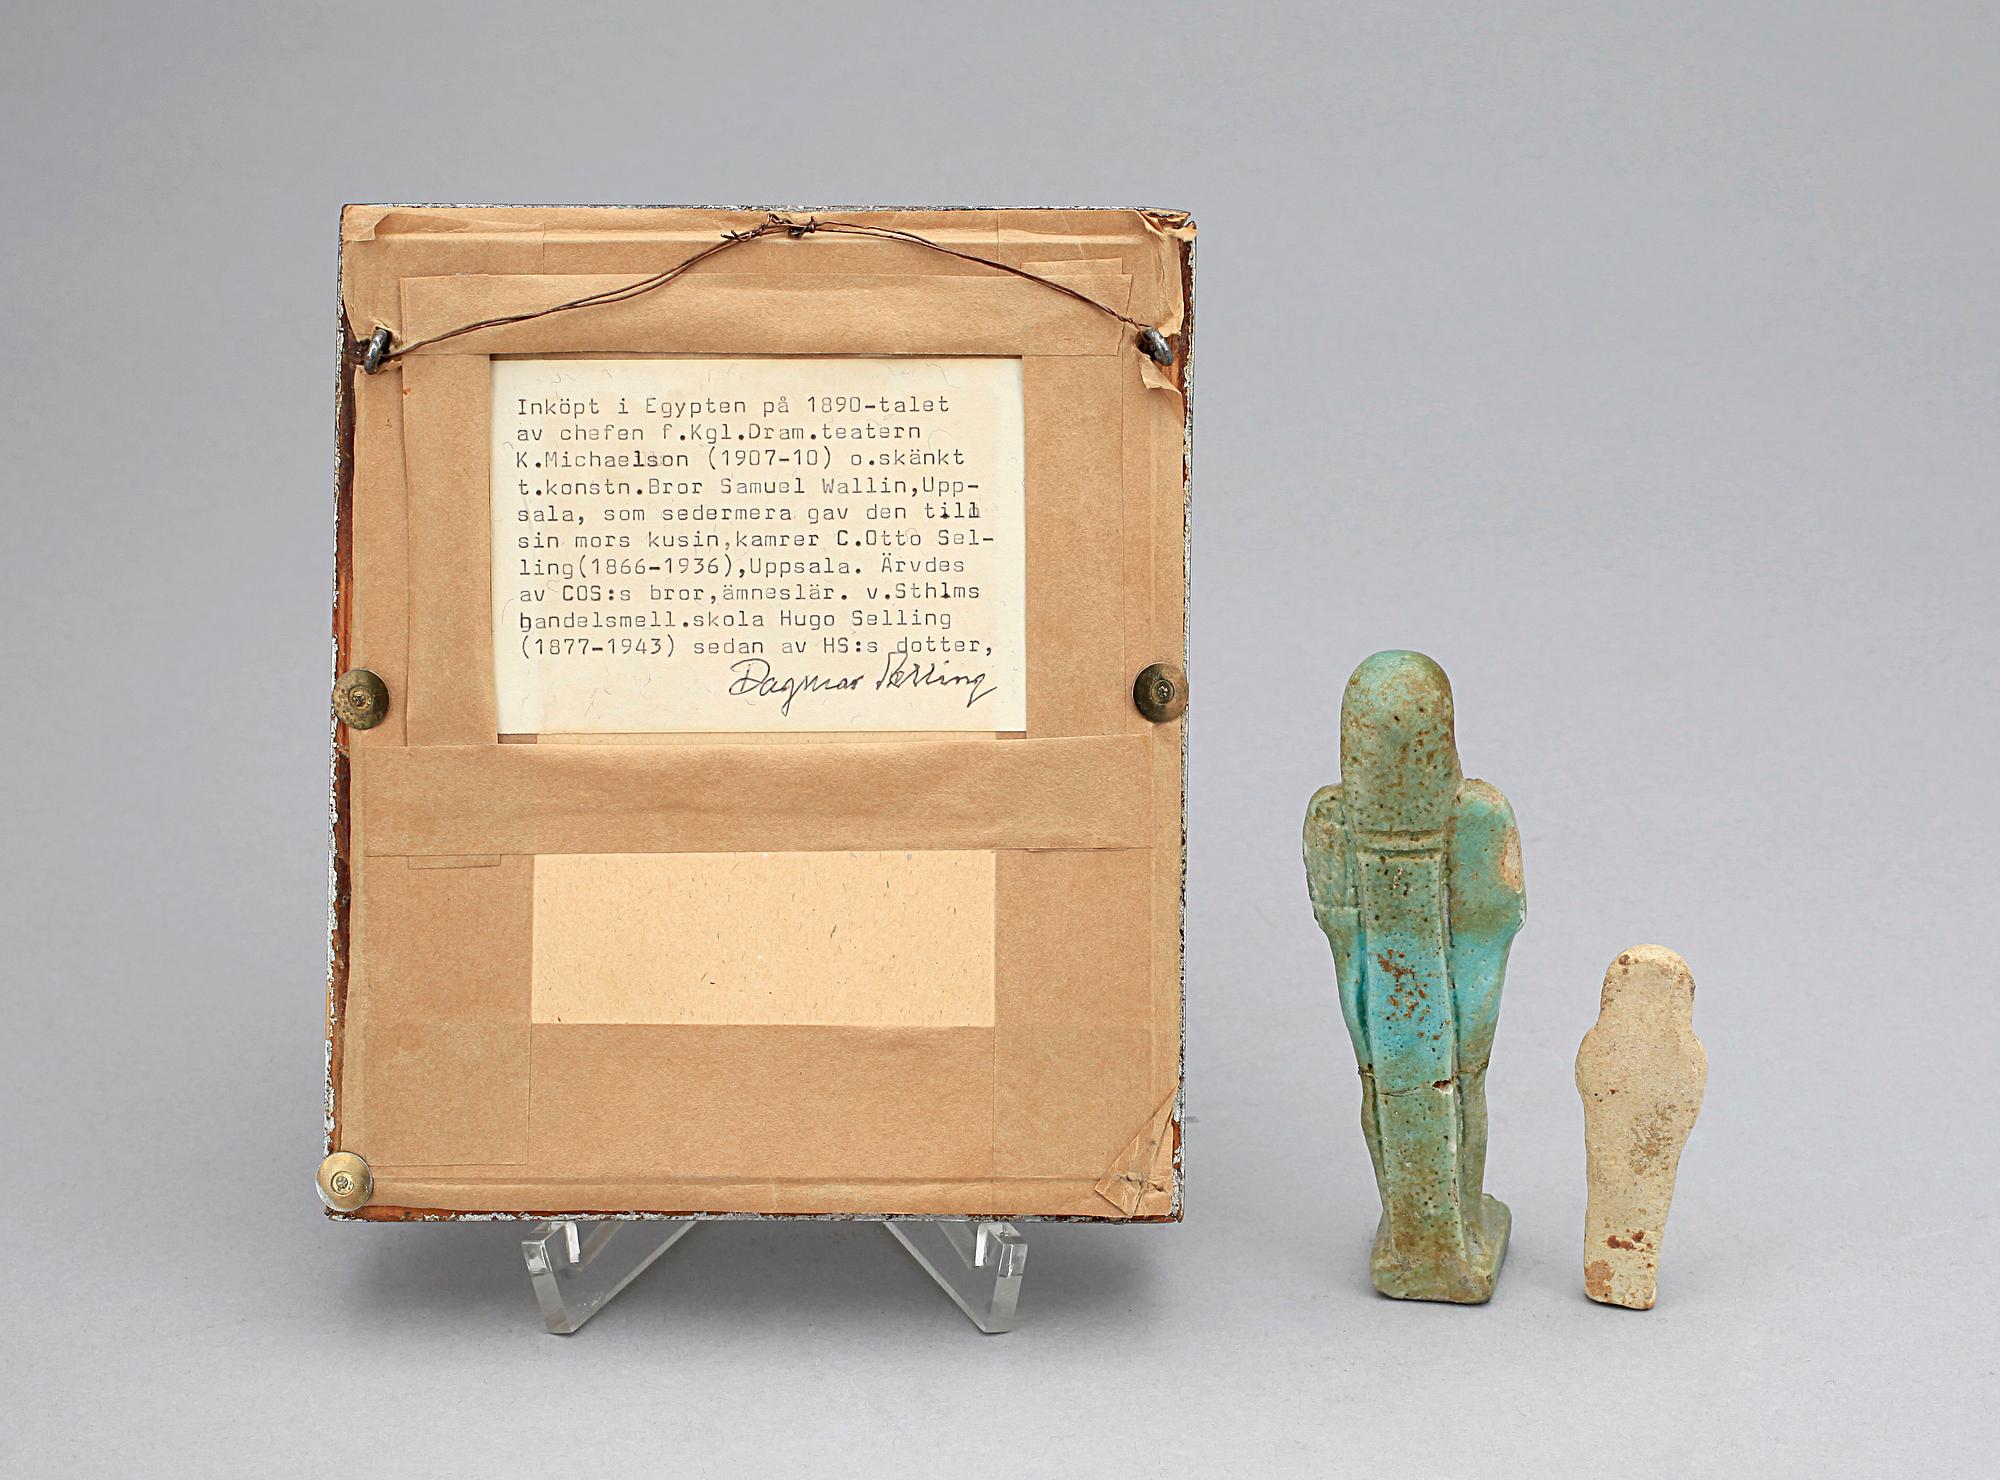 Inköpt i Egypten på 1890-talet
av chefen f.Kgl.Dram.teatern
K.Michaelson (1907-10) o.skänkt
t.konstn.Bror Samuel Wallin,Upp-
sala, som sedermera gav den till
sin mors kusin,kamrer C.Otto Sel-
ling(1866-1936),Uppsala. Ärvdes
av COS:s bror,ämneslär. v.Sthlms
handelsmell.skola Hugo Selling
(1877-1943) sedan av HS:s dotter,
Dagmar Selling